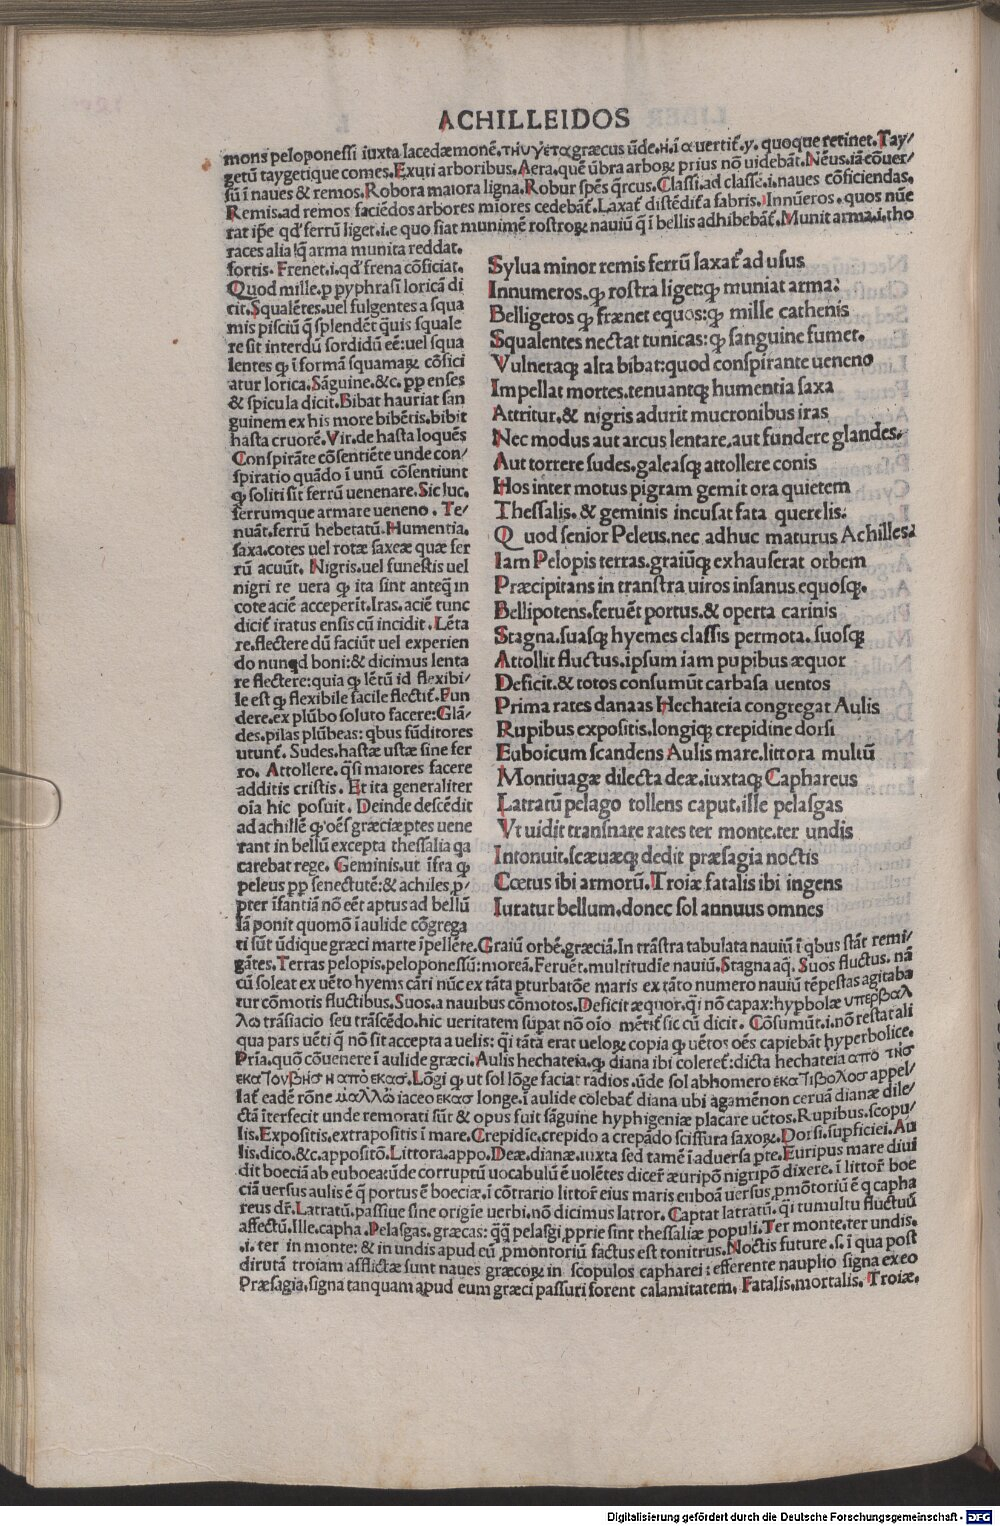 ACHILLEIDOS
mons peloponessi iuxta lacedæmonē, τηυγετα græcus ūde. η. ī α uertiť. y. quoque retinet. Tay/
getū taygetique comes. Exuti arboribus. Aera, quē ūbra arboꝝ prius nō uidebāt. Nēus. iā cōuer/
sū ī naues & remos. Robora maiora ligna. Robur spēs q̄rcus. Classi. ad classē. i. naues cōficiendas.
Remis. ad remos faciēdos arbores mīores cedebāť. Laxať distēdiť a fabris. Innūeros. quos nūe
rat ip̄e qđ ferrū liget. i. e quo fiat munimē rostroꝝ nauiū q̄ ī bellis adhibebāť. Munit arma. i. tho
races alia ꝗ arma munita reddat.
fortis. Frenet. i. qđ frena cōficiat.
Quod mille. p pyphrasī loricā di
cit. Squalētes. uel fulgentes a squa
mis pisciū q̄ splendēt q̄uis squale
re sit interdū sordidū eē: uel squa
lentes ꝙ ī formā squamaꝝ cōfici
atur lorica. Sāguine. &c. pp enses
& spicula dicit. Bibat hauriat san
guinem ex his more bibētis. bibit
hasta cruorē. Vir. de hasta loquēs
Conspirāte cōsentiēte unde con/
spiratio quādo ī unū cōsentiunt
ꝙ soliti sit ferrū uenenare. Sic luc.
ferrumque armare ueneno. Te/
nuāt. ferrū hebetatū. Humentia.
saxa. cotes uel rotæ saxeæ quæ fer
rū acuūt. Nigris. uel funestis uel
nigri re uera ꝙ ita sint anteq̄ in
cote aciē acceperit. Iras. aciē tunc
diciť iratus ensis cū incidit. Lēta
re. flectere dū faciūt uel experien
do nunqd boni: & dicimus lenta
re flectere: quia ꝙ lētū id flexibi/
le est ꝙ flexibile facile flectiť. Fun
dere. ex plūbo soluto facere: Glā/
des. pilas plūbeas: qbus fūditores
utunť. Sudes. hastæ ustæ sine fer
ro. Attollere. q̄si maiores facere
additis cristis. Et ita generaliter
oīa hic posuit. Deinde descēdit
ad achillē ꝙ oēs græciæ ptes uene
rant in bellū excepta thessalia qa
carebat rege. Geminis. ut īfra ꝙ
peleus pp senectutē: & achiles ꝓ/
pter īfantiā nō eēt aptus ad bellū
Iā ponit quomō ī aulide cōgrega
Sylua minor remis ferrū laxať ad usus
Innumeros. ꝙ rostra liget: ꝙ muniat arma:
Belligeros ꝙ frænet equos: ꝙ mille cathenis
Squalentes nectat tunicas: ꝙ sanguine fumet.
Vulneraqꝫ alta bibat: quod conspirante ueneno
Impellat mortes. tenuantqꝫ humentia saxa
Attritur. & nigris adurit mucronibus iras
Nec modus aut arcus lentare. aut fundere glandes.
Aut torrere sudes. galeasqꝫ attollere conis
Hos inter motus pigram gemit ora quietem
Thessalis. & geminis incusat fata querelis.
Quod senior Peleus. nec adhuc maturus Achilles.
Iam Pelopis terras. graiūqꝫ exhauserat orbem
Præcipitans in transtra uiros insanus equosqꝫ.
Bellipotens. feruēt portus. & operta carinis
Stagna. suasqꝫ hyemes classis permota. suosqꝫ
Attollit fluctus. ipsum iam pupibus æquor
Deficit. & totos consumūt carbasa uentos
Prima rates danaas Hechateia congregat Aulis
Rupibus expositis. longiqꝫ crepidine dorsi
Euboicum scandens Aulis mare. littora multū
Montiuagæ dilecta deæ. iuxtaqꝫ Caphareus
Latratū pelago tollens caput. ille pelasgas
Vt uidit transnare rates ter monte. ter undis
Intonuit. sæuæqꝫ dedit præsagia noctis
Cœtus ibi armorū. Troiæ fatalis ibi ingens
Iuratur bellum. donec sol annuus omnes
ti sūt ūdique græci marte īpellēte. Graiū orbē. græciā. In trāstra tabulata nauiū ī qbus stāt remi/
gātes. Terras pelopis. peloponessū: moreā. Feruēt. multitudīe nauiū. Stagna aq̄. Suos fluctus. nā
cū soleat ex uēto hyems cāri nūc ex tāta ꝑturbatōe maris ex tāto numero nauiū tēpestas agitaba
tur cōmotis fluctibus. Suos. a nauibus cōmotos. Deficit æquor. q̄i nō capax: hyꝑbolæ υπερβαλ
λω trāsiacio seu trāscēdo. hic ueritatem suꝑat nō oīo mētiť sic cū dicit. Cōsumūt. i. nō restat ali
qua pars uēti q̄ nō sit accepta a uelis: q̄i tātā erat ueloꝝ copia ꝙ uētos oēs capiebāt hyperbolice.
Prīa. quō cōuenere ī aulide græci. Aulis hechateia. ꝙ diana ibi coleretˉ: dicta hechateia απο τησ
εκατουβησ η απο εκασ. Lōgi ꝙ ut sol lōge faciat radios. ūde sol ab homero εκατιβολοσ appel/
lať. eadē rōne μαλλῶ iaceo εκασ longe. ī aulide colebať diana ubi agamēnon ceruā dianæ dile/
ctā īterfecit unde remorati sūt & opus fuit sāguine hyphigeniæ placare uētos. Rupibus. scopu/
lis. Expositis. extrapositis ī mare. Crepidīe. crepido a crepādo scissura saxoꝝ. Dorsi. suꝑficiei. Au
lis. dico. &c. appositō. Littora. appo. Deæ. dianæ. iuxta sed tamē ī aduersa ꝑte. Euripus mare diui
dit boeciā ab euboea: ūde corruptū uocabulū ē uolētes dicer̄ æuripō nigripō dixere. ī littor̄ boe
ciā uersus aulis ē q̄ portus ē boeciæ. ī cōtrario littor̄ eius maris euboā uersus ꝓmōtoriū ē q capha
reus dr̄. Latratū. passiue sine origīe uerbi. nō dicimus latror. Captat latratū. q̄i tumultu fluctuū
affectū. Ille. capha. Pelasgas. græcas: q̄q̄ pelasgi ꝓprie sint thessaliæ populi. Ter monte. ter undis.
.i. ter in monte: & in undis apud eū ꝓmontoriū factus est tonitrus. Noctis future. s. ī qua post
dirutā troiam afflictæ sunt naues græcoꝝ in scopulos capharei: efferente nauplio signa ex eo
Præsagia. signa tanquam apud eum græci passuri forent calamitatem. Fatalis. mortalis. Troiæ.
Digitalisierung gefördert durch die Deutsche Forschungsgemeinschaft - DFG